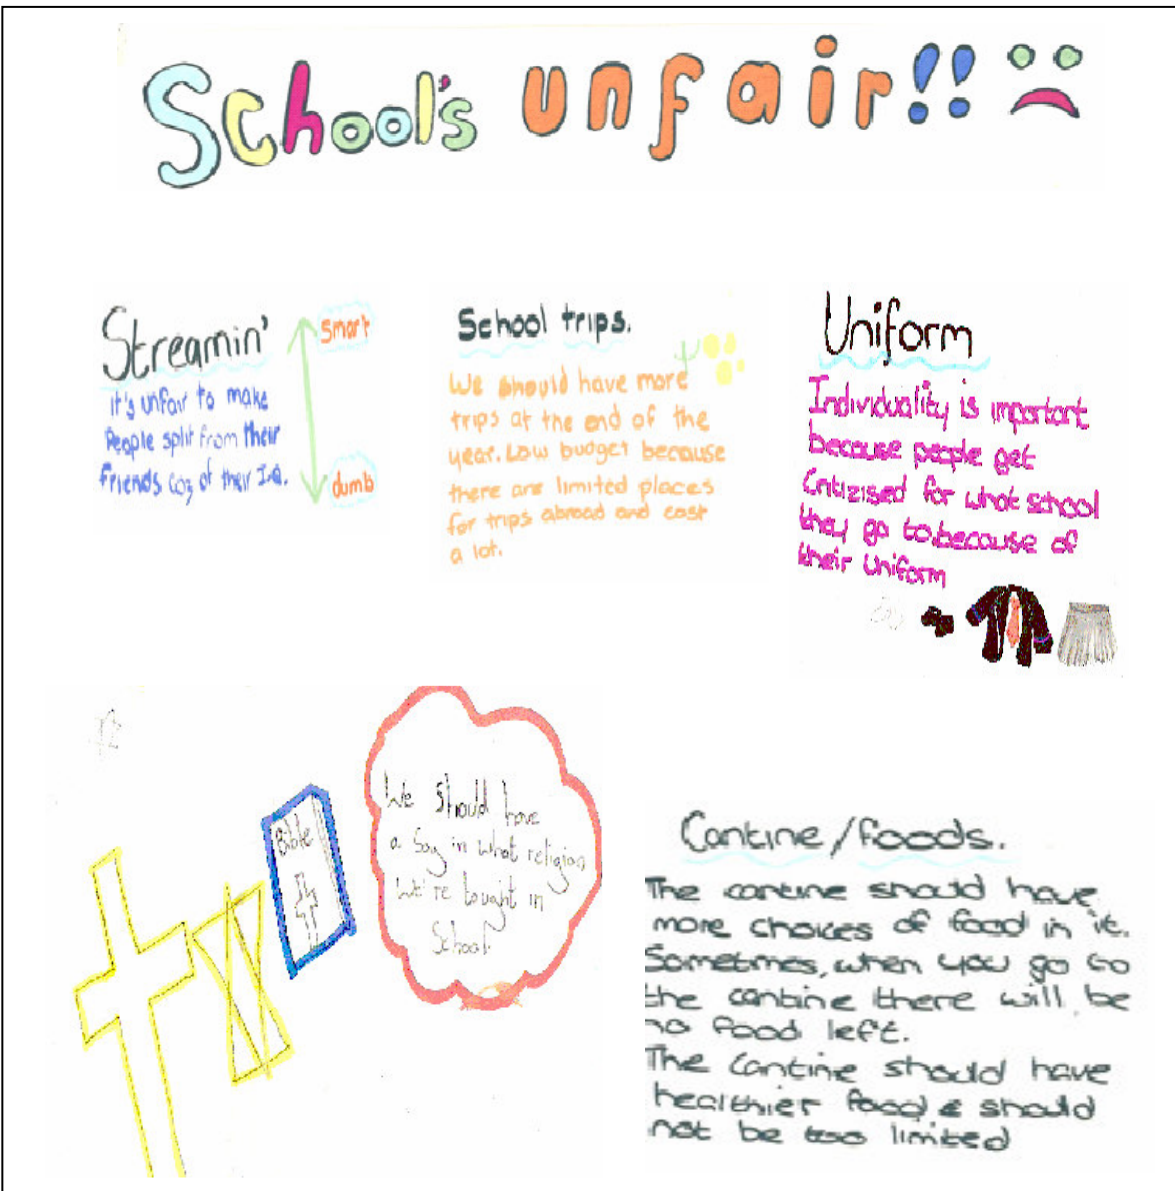 School's unfair!!
Streamin'
smart
It's unfair to make
People split from their
friends coz of their I.Q.
dumb
School trips.
We should have more
trips at the end of the
year. Low budget because
there are limited places
for trips abroad and cost
a lot.
Uniform
Individuality is important
because people get
Critizised for what school
they go to because of
their uniform
Bible
We should have
a say in what religion
We're tought in
School.
Cantine/foods.
The cantine should have
more choices of food in it.
Sometimes, when you go to
the cantine there will be
no food left.
The Cantine should have
healthier food & should
not be too limited